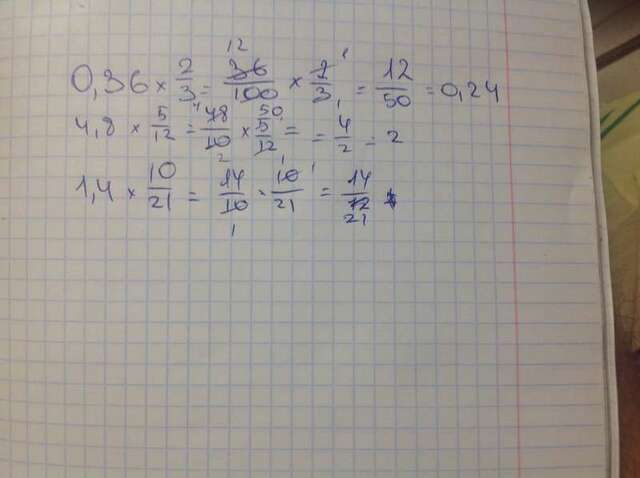 0,36 × 2/3 = 36/100 × 2/3 = 12/50 = 0,24
4,8 × 5/12 = 48/10 × 5/12 = = 4/2 = 2
1,4 × 10/21 = 14/10 · 10/21 = 14/21